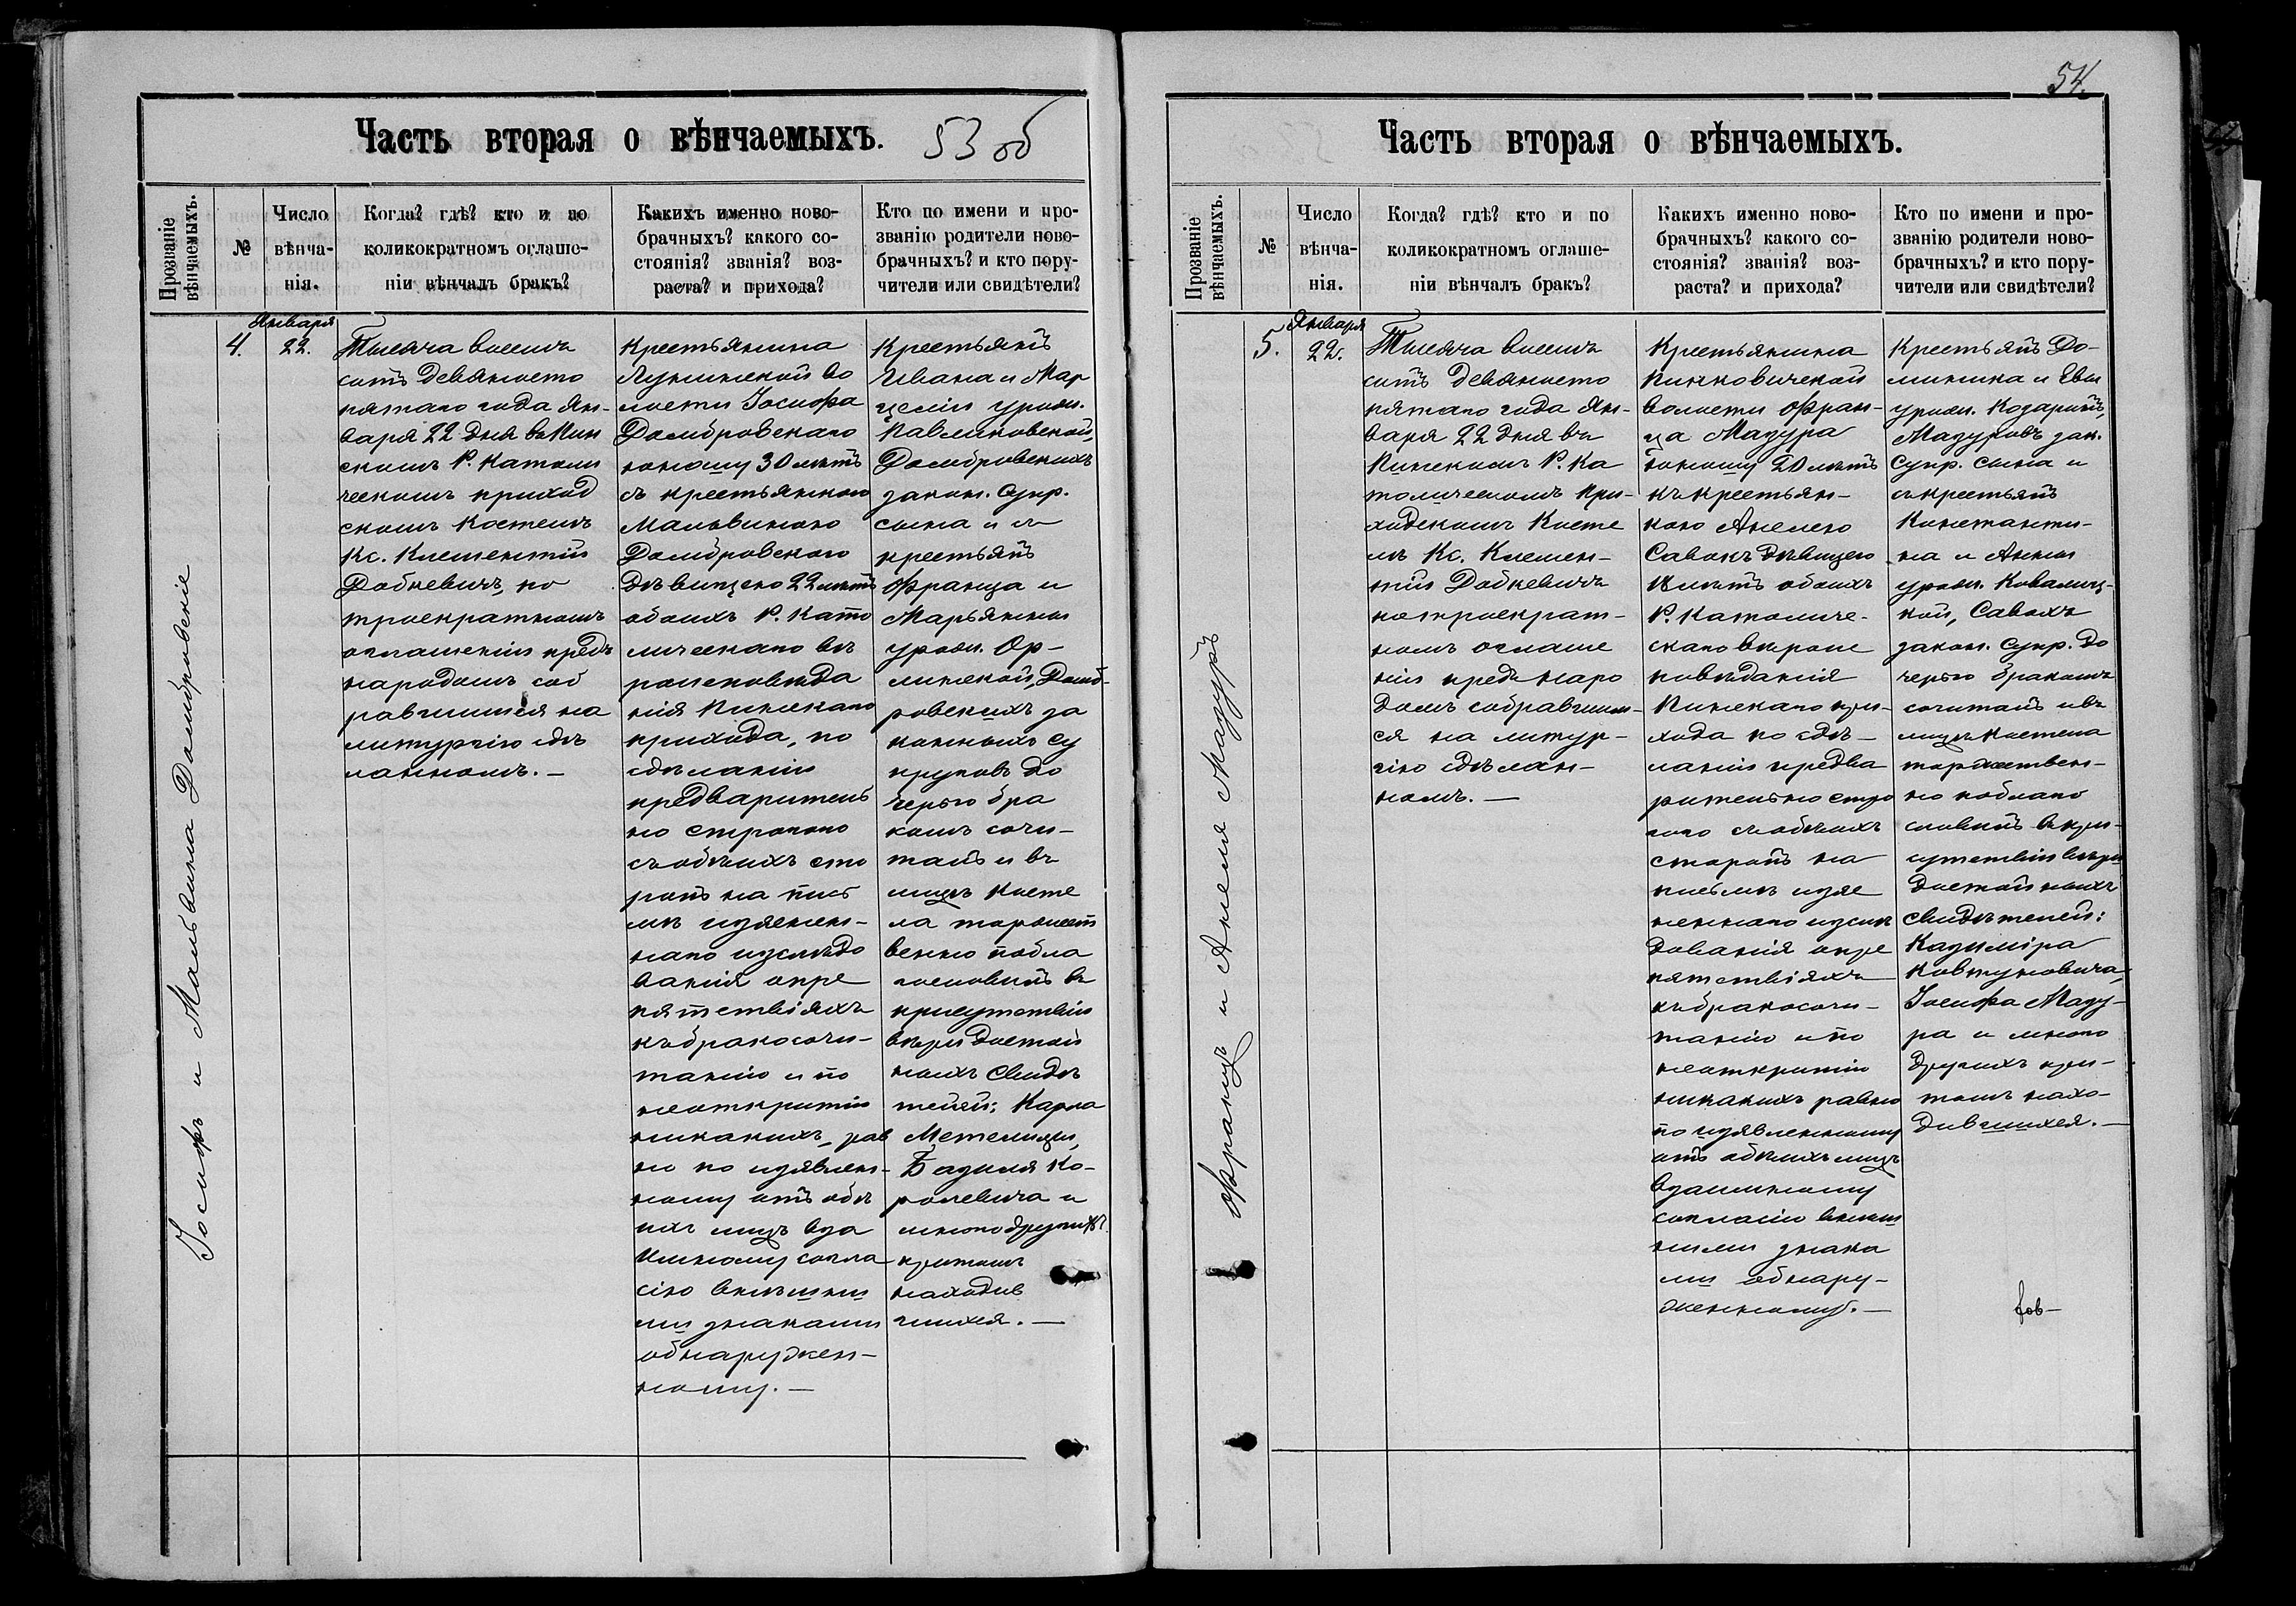 Часть вторая о вѣнчаемыхъ. 53 об
Прозваніе вѣнчаемыхъ.
№
Число вѣнча-
нія.
Когда? гдѣ? кто и по
коликократномъ оглаше-
ніи вѣнчалъ бракъ?
Какихъ именно ново-
брачныхъ? какого со-
стоянія? званія? воз-
раста? и прихода?
Кто по имени и про-
званію родители ново-
брачныхъ? и кто пору-
чители или свидѣтели?
Іосифъ и Мальвина Домбровскіе
4.
Января
22.
Тысяча восемь
сотъ девяносто
пятаго года Ян-
варя 22 дня въ Пин
скомъ Р. Католи
ческомъ приход
скомъ костелѣ
Кс. Клементій
Добкевичъ, по
троекратномъ
оглашеніи предъ
народомъ соб
равшимся на
литургію сдѣ
ланномъ. —
Крестьянина
Лунинской во
лости Іосифа
Домбровскаго
юношу 30 лѣтъ
съ крестьянкою
Мальвиною
Домбровскою
дѣвицею 22 лѣтъ
обоихъ Р. Като
лическаго вѣ
роисповѣда
нія Пинскаго
прихода, по
сдѣланіи
предваритель
но строгаго
съ обѣихъ сто
ронъ на пись
мѣ изъяснен-
наго изслѣдо
ванія о пре
пятствіяхъ
къ бракосоче-
танію и по
неоткрытію
никакихъ, рав
но по изъявлен-
ному отъ обѣ
ихъ лицъ вза
имному согла
сію внѣшни
ми знаками
обнаружен-
ному. —
Крестьянъ
Ивана и Мар
целіи урожд.
Павлюковской,
Домбровскихъ
закон. супр.
сына и съ
крестьянъ
Франца и
Марьянны
урожд. Ор-
линской, Домб-
ровскихъ за
конныхъ су
пруговъ до
черью бра
комъ соче-
талъ и въ
лицѣ косте
ла торжест
венно побла
гословилъ въ
присутствіи
вѣри достой
ныхъ свидѣ
телей: Карла
Метелицы,
Базиля Ко-
ролевича и
много другихъ
притомъ
находив
шихся. —
54.
Часть вторая о вѣнчаемыхъ.
Прозваніе вѣнчаемыхъ.
№
Число вѣнча-
нія.
Когда? гдѣ? кто и по
коликократномъ оглаше-
ніи вѣнчалъ бракъ?
Какихъ именно ново-
брачныхъ? какого со-
стоянія? званія? воз-
раста? и прихода?
Кто по имени и про-
званію родители ново-
брачныхъ? и кто пору-
чители или свидѣтели?
Францъ и Анеля Мазуръ
5.
Января
22.
Тысяча восемь
сотъ девяносто
пятаго года Ян-
варя 22 дня въ
Пинскомъ Р. Ка
толическомъ при-
ходскомъ косте
лѣ Кс. Клемен-
тій Добкевичъ
по троекрат-
номъ оглаше
ніи предъ наро
домъ собравшим-
ся на литур-
гію сдѣлан-
номъ. —
Крестьянина
Пинковичской
волости Фран-
ца Мазура
юношу 20 лѣтъ
съ крестьян-
кою Анелею
Савокъ дѣвицею
лѣтъ обоихъ
Р. Католиче-
скаго вѣроис
повѣданія
Пинскаго при-
хода по сдѣ-
ланіи предва
рительно стро
гаго съ обѣихъ
сторонъ на
письмѣ изъяс
неннаго изслѣ
дованія о пре
пятствіяхъ
къ бракосоче-
танію и по
неоткрытію
никакихъ равно
по изъявленному
отъ обѣихъ лицъ
взаимному
согласію внѣш
ними знака
ми обнару-
женному. —
Крестьянъ До-
миника и Евы
урожд. Козаринъ,
Мазуровъ зак.
супр. сына и
съ крестьянъ
Константи-
на и Анны
урожд. Ковалиц-
кой, Савокъ
закон. супр. до
черью бракомъ
сочеталъ и въ
лицѣ костела
торжествен-
но поблаго
словилъ въ при-
сутствіи вѣри
достойныхъ
свидѣтелей:
Казиміра
Ковтуновича,
Іосифа Мазу-
ра и много
другихъ при-
томъ нахо-
дившихся. —